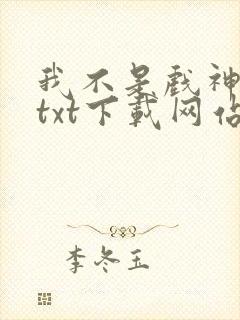 我不是戏神
txt下载网站
李冬玉